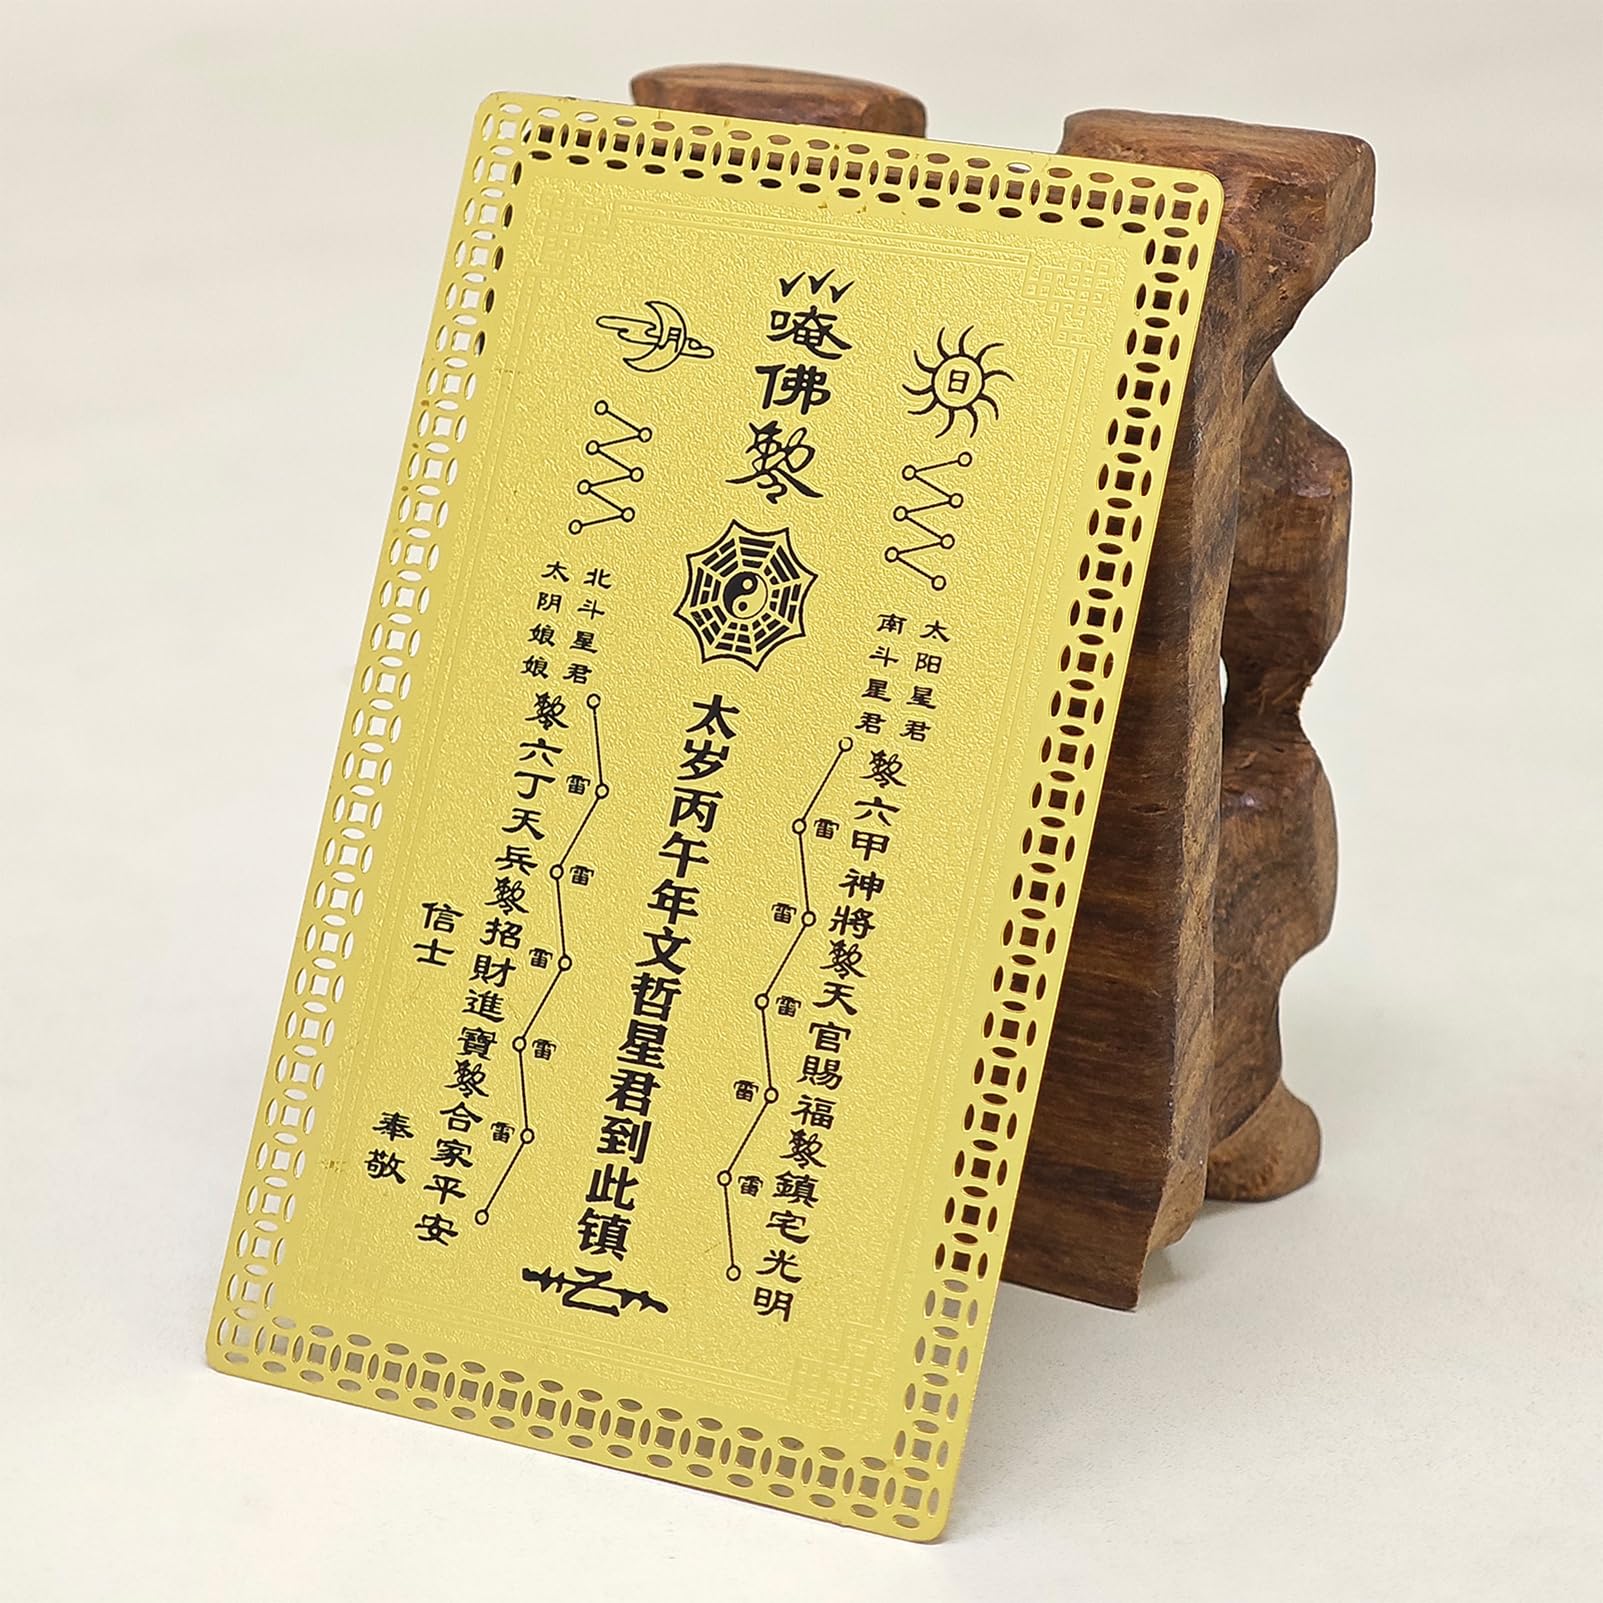 唵佛𠡠
日
月
太阳星君
南斗星君
北斗星君
太阴娘娘
𠡠六甲神將𠡠天官賜福𠡠鎮宅光明
雷
雷
雷
雷
雷
太岁丙午年文哲星君到此镇
雷
雷
雷
雷
雷
𠡠六丁天兵𠡠招財進寶𠡠合家平安
信士
奉敬